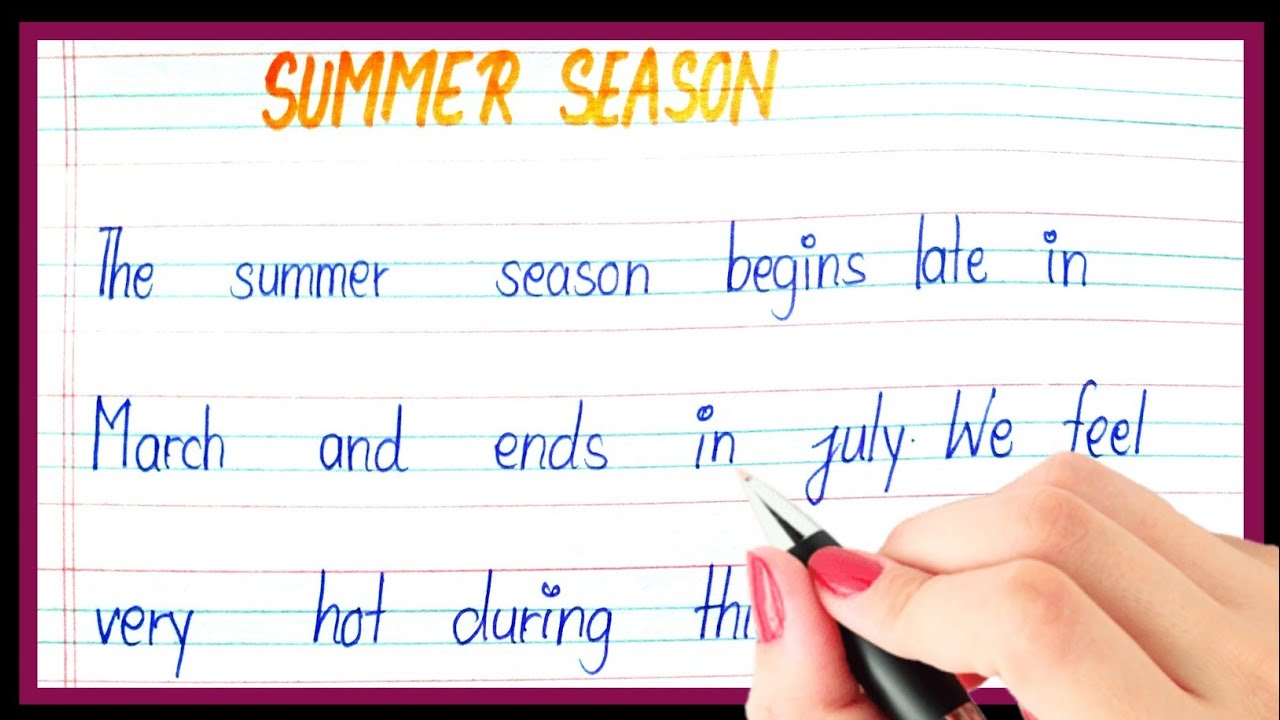 SUMMER SEASON
The summer season begins late in
March and ends in july. We feel
very hot during